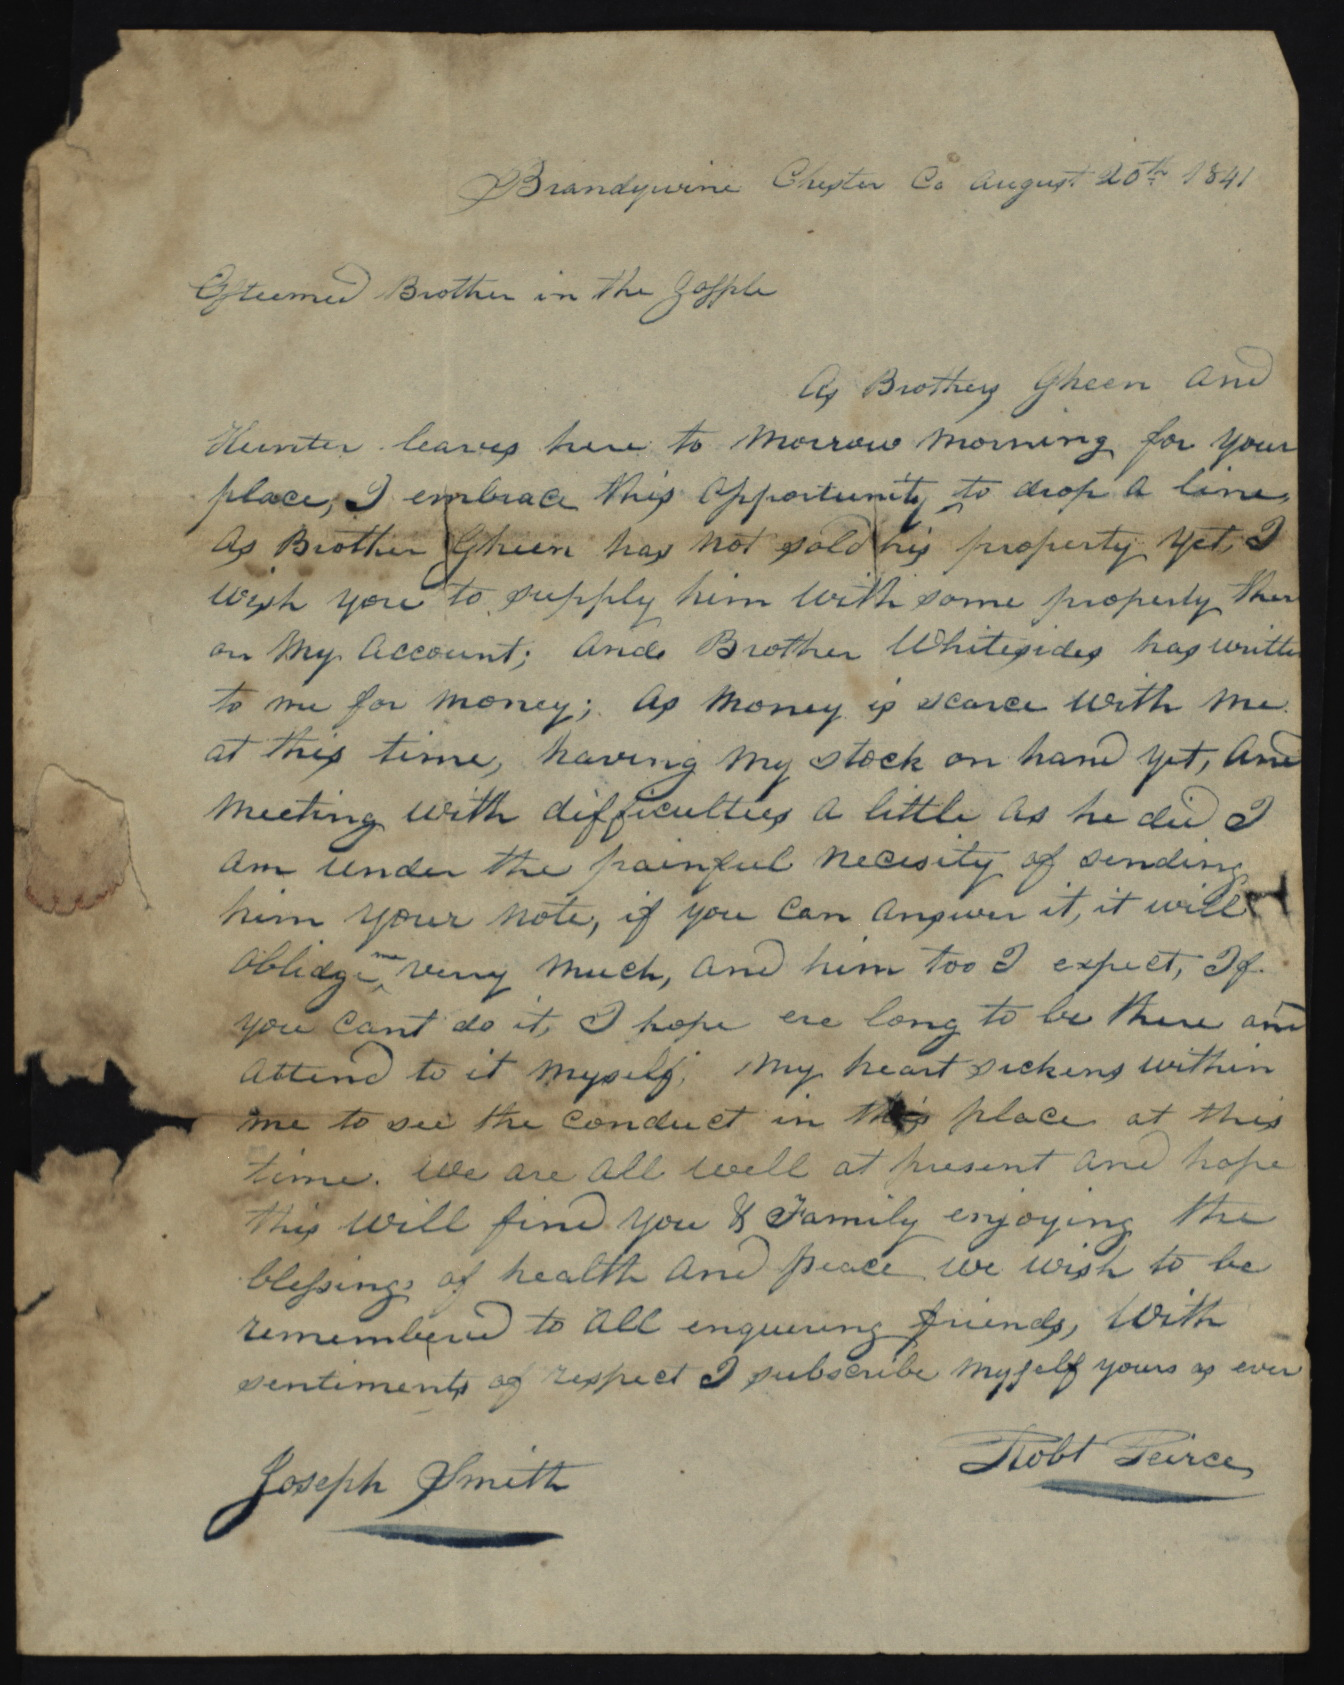 Brandywine Chester Co August 20th 1841
Esteemed Brother in the Gosple
As Brothers Gheen and
Hunter leaves here to morrow morning for your
place, I embrace this opportunity to drop a line,
As Brother Gheen has not sold his property yet, I
wish you to supply him with some property ther
on my account; and Brother Whitesides has writte
to me for money; as money is scarce with me
at this time, having my stock on hand yet, and
meeting with difficulties a little as he did I
am under the painful necesity of sending
him your note, if you can answer it, it will
oblidge me very much, and him too I expect, If
you cant do it, I hope ere long to be there and
attend to it myself, my heart sickens within
me to see the conduct in this place at this
time. We are all well at present and hope
this will find you & Family enjoying the
blessings of health and peace we wish to be
remembered to all enquireing friends, With
sentiments of respect I subscribe myself yours as ever
Robt Peirce
Joseph Smith